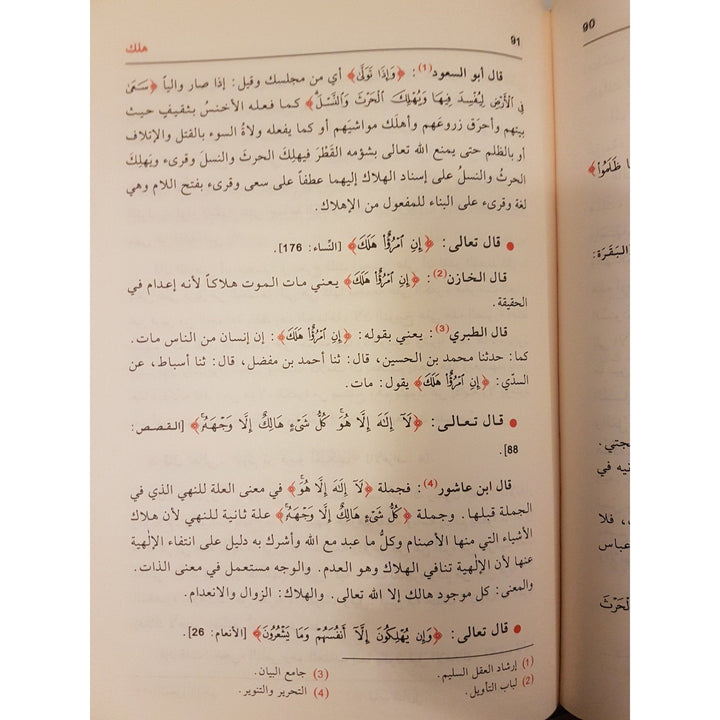 هلك
91
قال أبو السعود(1): ﴿وَإِذَا تَوَلَّىٰ﴾ أي من مجلسك وقيل: إذا صار والياً ﴿سَعَىٰ
فِي ٱلۡأَرۡضِ لِيُفۡسِدَ فِيهَا وَيُهۡلِكَ ٱلۡحَرۡثَ وَٱلنَّسۡلَۚ﴾ كما فعله الأخنسُ بثقيفٍ حيث
بيتهم وأحرَق زروعَهم وأهلَك مواشيَهم أو كما يفعله ولاةُ السوء بالقتل والإتلاف
أو بالظلم حتى يمنع الله تعالى بشؤمه القَطْرَ فيهلِكَ الحرثَ والنسلَ وقرىء ويَهلِكَ
الحرثُ والنسلُ على إسناد الهلاك إليهما عطفاً على سعى وقرىء بفتح اللام وهي
لغة وقرىء على البناء للمفعول من الإهلاك.
● قال تعالى: ﴿إِنِ ٱمۡرُؤٌاْ هَلَكَ﴾ [النّساء: 176].
قال الخازن(2): ﴿إِنِ ٱمۡرُؤٌاْ هَلَكَ﴾ يعني مات الموت هلاكاً لأنه إعدام في
الحقيقة.
قال الطبري(3): يعني بقوله: ﴿إِنِ ٱمۡرُؤٌاْ هَلَكَ﴾: إن إنسان من الناس مات.
كما: حدثنا محمد بن الحسين، قال: ثنا أحمد بن مفضل، قال: ثنا أسباط، عن
السدّي: ﴿إِنِ ٱمۡرُؤٌاْ هَلَكَ﴾ يقول: مات.
● قال تعالى: ﴿لَآ إِلَٰهَ إِلَّا هُوَۚ كُلُّ شَيۡءٍ هَالِكٌ إِلَّا وَجۡهَهُۥۚ﴾ [القصص:
88].
قال ابن عاشور(4): فجملة ﴿لَآ إِلَٰهَ إِلَّا هُوَۚ﴾ في معنى العلة للنهي الذي في
الجملة قبلها. وجملة ﴿كُلُّ شَيۡءٍ هَالِكٌ إِلَّا وَجۡهَهُۥۚ﴾ علة ثانية للنهي لأن هلاك
الأشياء التي منها الأصنام وكلُّ ما عبد مع الله وأشرك به دليل على انتفاء الإلٰهية
عنها لأن الإلٰهية تنافي الهلاك وهو العدم. والوجه مستعمل في معنى الذات.
والمعنى: كل موجود هالك إلا الله تعالى. والهلاك: الزوال والانعدام.
● قال تعالى: ﴿وَإِن يُهۡلِكُونَ إِلَّآ أَنفُسَهُمۡ وَمَا يَشۡعُرُونَ﴾ [الأنعام: 26].
(1) إرشاد العقل السليم.
(2) لباب التأويل.
(3) جامع البيان.
(4) التحرير والتنوير.
90
ظَلَمُواْ﴾
البَقَرَة:
فلا
عباس
ٱلۡحَرۡثَ